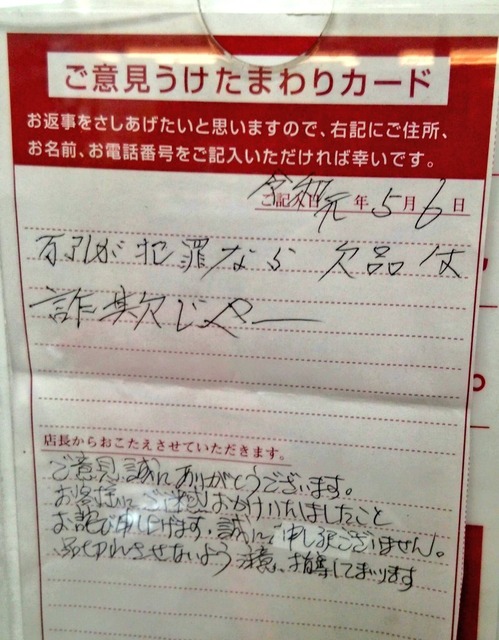 ご意見うけたまわりカード
お返事をさしあげたいと思いますので、右記にご住所、
お名前、お電話番号をご記入いただければ幸いです。
ご記入日 令和元年5月6日
万引が犯罪なら欠品は
詐欺じゃー
店長からおこたえさせていただきます。
ご意見誠にありがとうございます。
お客様にご迷惑おかけいたしましたこと
お詫び申し上げます。誠に申し訳ございません。
品切れさせないよう注意、指導してまいります